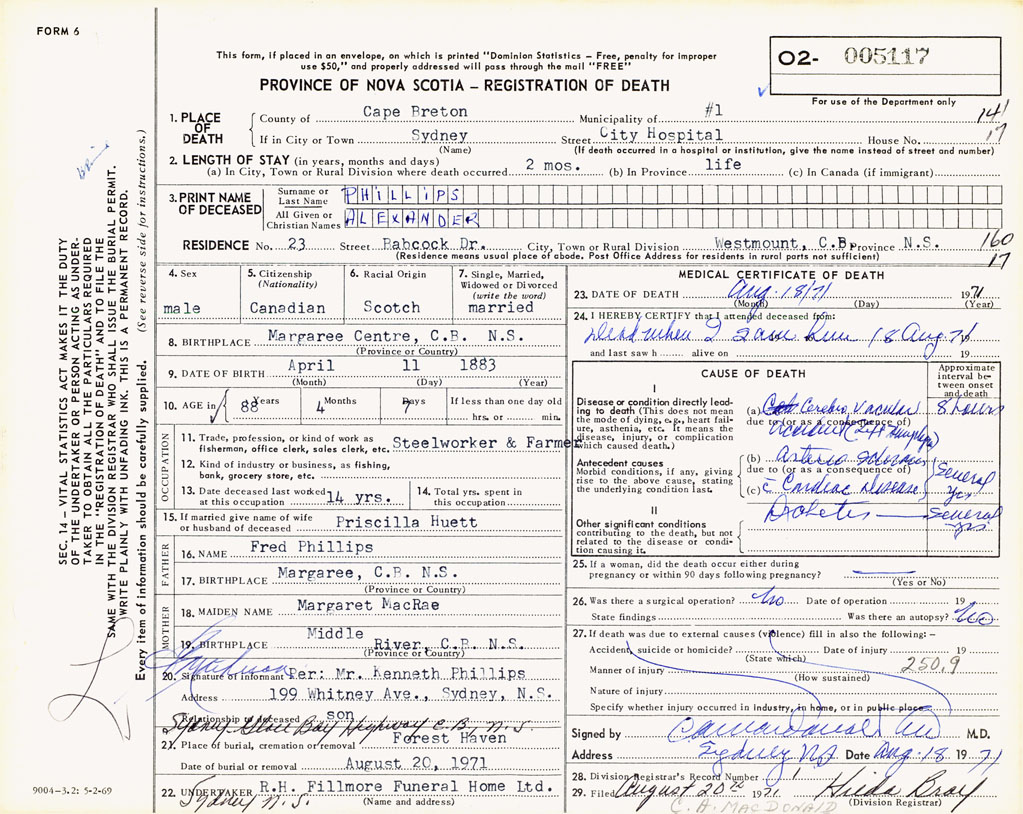 FORM 6
This form, if placed in an envelope, on which is printed "Dominion Statistics - Free, penalty for improper
use $50," and properly addressed will pass through the mail "FREE"
PROVINCE OF NOVA SCOTIA - REGISTRATION OF DEATH
O2- 005117
For use of the Department only
1. PLACE OF DEATH
County of Cape Breton Municipality of #1 141
If in City or Town Sydney Street City Hospital House No. 17
(Name) (If death occurred in a hospital or institution, give the name instead of street and number)
2. LENGTH OF STAY (in years, months and days)
(a) In City, Town or Rural Division where death occurred 2 mos. (b) In Province life (c) In Canada (if immigrant)
3. PRINT NAME OF DECEASED
Surname or Last Name PHILLIPS
All Given or Christian Names ALEXANDER
RESIDENCE No. 23 Street Babcock Dr. City, Town or Rural Division Westmount, C.B. Province N.S. 160
(Residence means usual place of abode. Post Office Address for residents in rural parts not sufficient) 17
4. Sex male
5. Citizenship (Nationality) Canadian
6. Racial Origin Scotch
7. Single, Married, Widowed or Divorced (write the word) married
8. BIRTHPLACE Margaree Centre, C.B. N.S.
(Province or Country)
9. DATE OF BIRTH April 11 1883
(Month) (Day) (Year)
10. AGE in 88 Years 4 Months 7 Days If less than one day old
hrs. or min.
OCCUPATION
11. Trade, profession, or kind of work as fisherman, office clerk, sales clerk, etc. Steelworker & Farmer
12. Kind of industry or business, as fishing, bank, grocery store, etc.
13. Date deceased last worked at this occupation 14 yrs.
14. Total yrs. spent in this occupation
15. If married give name of wife or husband of deceased Priscilla Huett
FATHER
16. NAME Fred Phillips
17. BIRTHPLACE Margaree, C.B. N.S.
(Province or Country)
MOTHER
18. MAIDEN NAME Margaret MacRae
19. BIRTHPLACE Middle River, C.B. N.S.
(Province or Country)
20. Signature of informant Per: Mr. Kenneth Phillips
Address 199 Whitney Ave., Sydney, N.S.
Relationship to deceased son
Sydney Glace Bay Highway C.B. N.S.
21. Place of burial, cremation or removal Forest Haven
Date of burial or removal August 20, 1971
22. UNDERTAKER R.H. Fillmore Funeral Home Ltd.
Sydney N.S. (Name and address)
MEDICAL CERTIFICATE OF DEATH
23. DATE OF DEATH Aug. 18/71 1971
(Month) (Day) (Year)
24. I HEREBY CERTIFY that I attended deceased from:
Dead when I saw him 18 Aug 71 19
and last saw h alive on 19
CAUSE OF DEATH
Approximate interval between onset and death
I
Disease or condition directly leading to death (This does not mean the mode of dying, e.g., heart failure, asthenia, etc. It means the disease, injury, or complication which caused death.)
(a) Cerebro Vascular 8 hours
due to (or as a consequence of)
Accident
Antecedent causes
Morbid conditions, if any, giving rise to the above cause, stating the underlying condition last.
(b) Arterio Sclerosis
due to (or as a consequence of)
(c) c Cardiac Disease Several yrs
II
Diabetes Several yrs
Other significant conditions contributing to the death, but not related to the disease or condition causing it.
25. If a woman, did the death occur either during pregnancy or within 90 days following pregnancy?
(Yes or No)
26. Was there a surgical operation? No Date of operation 19
State findings Was there an autopsy? No
27. If death was due to external causes (violence) fill in also the following: -
Accident, suicide or homicide? Date of injury 19
(State which)
Manner of injury 250.9
(How sustained)
Nature of injury
Specify whether injury occurred in industry, in home, or in public place
Signed by M.D.
Address Sydney NS Date Aug. 18 1971
28. Division Registrar's Record Number
29. Filed August 20th 1971 Hilda Bray
(Division Registrar)
C. A. MACDONALD
SEC. 14 - VITAL STATISTICS ACT MAKES IT THE DUTY
OF THE UNDERTAKER OR PERSON ACTING AS UNDER-
TAKER TO OBTAIN ALL THE PARTICULARS REQUIRED
IN THE "REGISTRATION OF DEATH" AND TO FILE THE
SAME WITH THE DIVISION REGISTRAR WHO SHALL ISSUE THE BURIAL PERMIT.
WRITE PLAINLY WITH UNFADING INK. THIS IS A PERMANENT RECORD.
Every item of information should be carefully supplied. (See reverse side for instructions.)
9004-3.2: 5-2-69